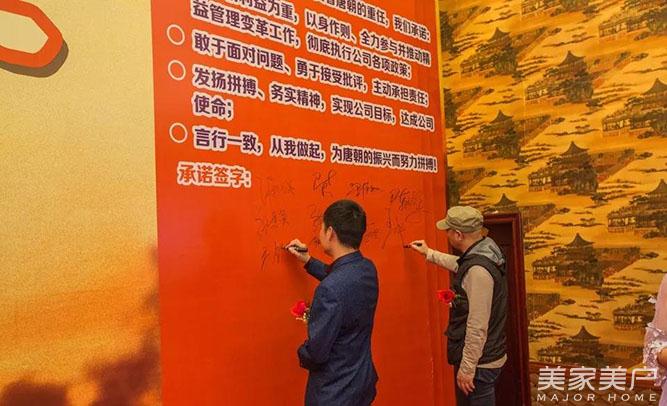 利益为重，以身作则、全力参与并推动精
益管理变革工作，彻底执行公司各项政策；
○ 敢于面对问题、勇于接受批评，主动承担责任；
○ 发扬拼搏、务实精神，实现公司目标，达成公司
使命；
○ 言行一致，从我做起，为唐朝的振兴而努力拼搏！
承诺签字：
美家美户
MAJOR HOME